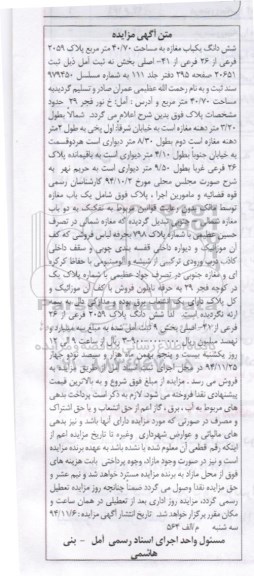 متن آگهی مزایده
شش دانگ یکباب مغازه به مساحت ۴۰/۷۰ متر مربع پلاک ۲۰۵۹
فرعی از ۲۶ فرعی از ۴۱- اصلی بخش نه ثبت آمل ذیل ثبت
۲۰۶۵۱ صفحه ۲۹۵ دفتر جلد ۱۱۱ به شماره مسلسل ۹۷۹۴۵۰
سند ثبت و به نام رحمت الله عظیمی عمران صادر و تسلیم گردیده
مساحت ۴۰/۷۰ متر مربع و آدرس : آمل: خ نور فجر ۲۹ حدود
مشخصات پلاک فوق بدین شرح اعلام می گردد. شمالا بطول
۳/۲۰ متر دهنه مغازه است به خیابان شرقا: اول پخی به طول ۲متر
دهنه مغازه است دوم بطول ۸/۳۰ متر دیواری است هردوقسمت
به خیابان جنوبا بطول ۴/۱۰ متر دیواری است به باقیمانده پلاک
۲۶ فرعی غربا بطول ۹/۵۰ متر دیواری است به حریم نهر به
شرح صورت مجلس محلی مورخ ۹۴/۱۰/۲ کارشناسان رسمی
قوه قضائیه و مامورین اجرا ، پلاک فوق شامل یک باب مغازه
توسط مالک بدون رعایت قوانین مربوط به تفکیک به دو باب
مغازه شمالی و جنوبی تبدیل گردیده که مغازه شمالی در تصرف
حسین عظیمی با شماره پلاک ۷۹۸ بحرفه لباس فروشی که کف
آن موزائیک و دیواره داخلی قفسه بندی چوبی و سقف داخلی
کاذب درب ورودی ترکیبی از شیشه و آلومینیومی با حفاظ کرکره
ای و مغازه جنوبی در تصرف جواد عظیمی با شماره پلاک یک
در کوچه فجر ۲۹ به حرفه نایلون فروش با کف آن موزائیک و
کل پلاک دارای یک انشعاب برق بوده و مدارکی دال بر بیمه
ارئه نگردیده است لذا شش دانگ پلاک ۲۰۵۹ فرعی از ۲۶
فرعی از ۴۱- اصلی بخش ۹ ثبت آمل شده به مبلغ سه میلیارد و
نهصد میلیون ریال ریال از ساعت ۹ الی ۱۲
روز یکشنبه بیست و پنجم بهمن ماه هزار و سیصد نودو چهار
۹۴/۱۱/۲۵ در محل اجرای ثبت آمل از طریق مزایده به
فروش می رسد . مزایده از مبلغ فوق شروع و به بالاترین قیمت
پیشنهادی نقدا فروخته می شود. لازم به ذکر است پرداخت بدهی
های مربوطه به آب ، برق ، گاز اعم از حق انشعاب و یا حق اشتراک
و مصرف در صورتی که مورد مزایده دارای آنها باشد و نیز بدهی
های مالیاتی و عوارض شهرداری وغیره تا تاریخ مزایده اعم از
اینکه رقم قطعی آن معلوم شده یا نشده باشد به عهده برنده مزایده
است و نیز در صورت وجود مازاد، وجوه پرداختی بابت هزینه های
فوق از محل مازاد به برنده مزایده مسترد خواهد شد و نیم عشر و
حق مزایده نقدا وصول می گردد ضمنا چنانچه روز مزایده تعطیل
رسمی گردد، مزایده روز اداری بعد از تعطیلی در همان ساعت و
مکان مقرر برگزار خواهد شد. تاریخ انتشار آگهی مزایده : ۹۴/۱۱/۶
سه شنبه م/الف ۵۶۴
مسئول واحد اجرای اسناد رسمی آمل - بنی
هاشمی